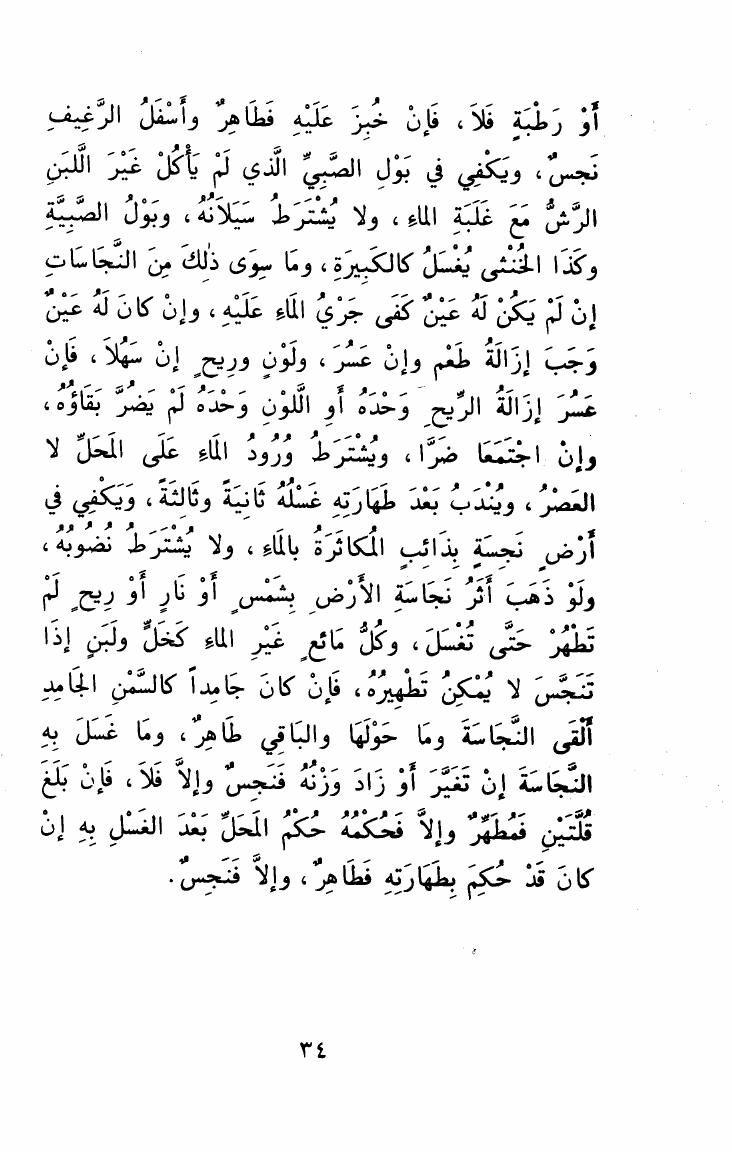 أَوْ رَطْبَةٍ فَلاَ ، فَإِنْ خُبِزَ عَلَيْهِ فَطَاهِرٌ وأَسْفَلُ الرَّغِيفِ
نَجسٌ ، ويَكْفِي في بَوْلِ الصَّبِيِّ الَّذي لَمْ يَأْكُلْ غَيْرَ اللَّبَنِ
الرَّشُّ مَعَ غَلَبَةِ الماءِ ، ولا يُشْتَرطُ سَيَلاَنُهُ ، وبَوْلُ الصَّبِيَّةِ
وكَذَا الخُنْثى يُغْسَلُ كالكَبِيرَةِ ، ومَا سِوَى ذلِكَ مِنَ النَّجَاسَاتِ
إنْ لَمْ يَكُنْ لَهُ عَيْنٌ كَفَى جَرْيُ المَاءِ عَلَيْهِ ، وإنْ كانَ لَهُ عَيْنٌ
وَجَبَ إزَالَةُ طَعْمٍ وإنْ عَسُرَ ، ولَوْنٍ ورِيحٍ إنْ سَهُلاَ ، فَإنْ
عَسُرَ إزَالَةُ الرِّيحِ وَحْدَهُ أوِ اللَّوْنِ وَحْدَهُ لَمْ يَضُرَّ بَقَاؤُهُ ،
وإنْ اجْتَمَعَا ضَرَّا ، ويُشْتَرطُ وُرُودُ المَاءِ عَلَى المَحَلِّ لا
العَصْرُ ، ويُنْدَبُ بَعْدَ طَهَارَتِهِ غَسْلُهُ ثَانِيَةً وثَالِثَةً ، وَيَكْفِي في
أَرْضٍ نَجِسَةٍ بِذَائِبٍ المُكاثَرَةُ بالمَاءِ ، ولا يُشْتَرَطُ نُضُوبُهُ ،
ولَوْ ذَهَبَ أَثَرُ نَجَاسَةِ الأَرْضِ بِشَمْسٍ أَوْ نَارٍ أَوْ رِيحٍ لَمْ
تَطْهُرْ حَتَّى تُغْسَلَ ، وكُلُّ مَائِعٍ غَيْرِ الماءِ كَخَلٍّ ولَبَنٍ إذَا
تَنَجَّسَ لا يُمْكِنُ تَطْهِيرُهُ ، فَإنْ كانَ جَامِداً كالسَّمْنِ الجَامِدِ
أَلْقَى النَّجَاسَةَ ومَا حَوْلَهَا والبَاقِي طَاهِرٌ ، ومَا غَسَلَ بِهِ
النَّجَاسَةَ إنْ تَغَيَّرَ أَوْ زَادَ وَزْنُهُ فَنَجِسٌ وإلاَّ فَلاَ ، فَإنْ بَلَغَ
قُلَّتَيْنِ فَمُطَهِّرٌ وإلاَّ فَحُكْمُهُ حُكْمُ المَحَلِّ بَعْدَ الغَسْلِ بِهِ إنْ
كانَ قَدْ حُكِمَ بِطَهَارَتِهِ فَطَاهِرٌ ، وإلاَّ فَنَجِسٌ .
٣٤